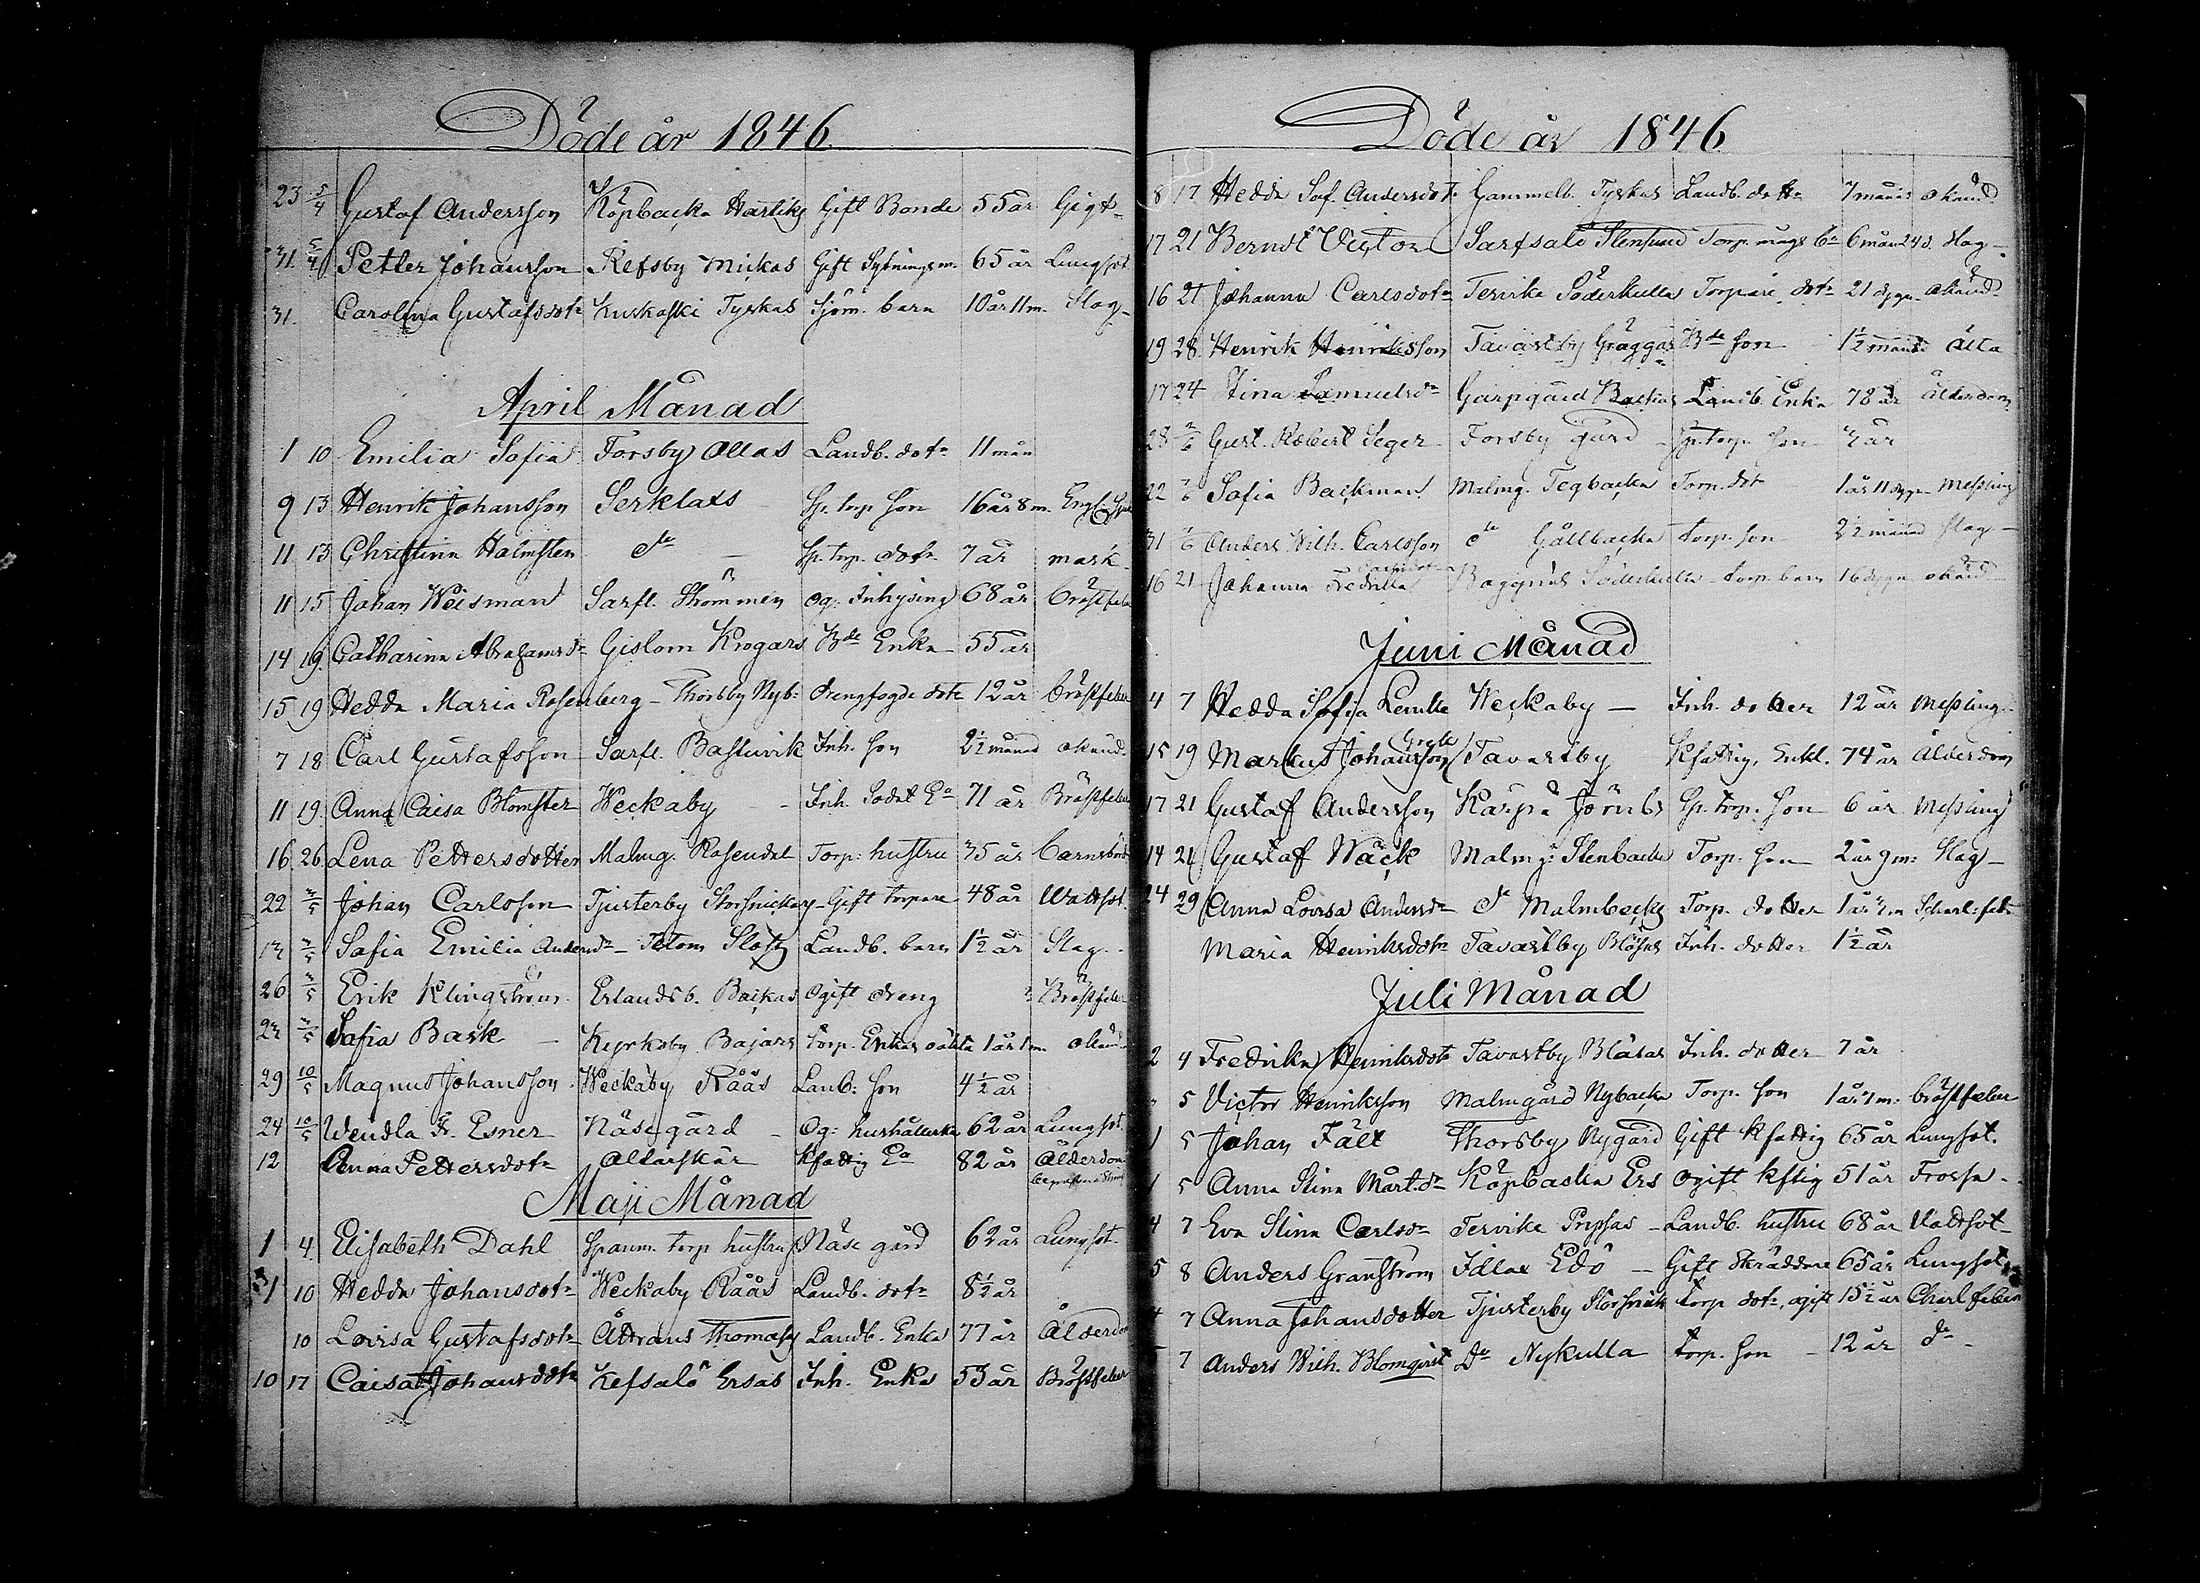 Döde år 1846.
23 5/4 Gustaf Andersson Köpbacka Hartiks Gift Bonde 55 år Gigt
31 5/4 Petter Johansson Refsby Mickas Gift Sytningsm. 65 år Lungsot
31. Carolina Gustafsdotr Kuskoski Tyskas Sjöm. barn 10 år 11 m. Slag
April Månad
1 10 Emilia Sofia Forsby Ollas Landb. dotr 11 mån
9 13 Henrik Johansson Serklaxs Sp. torp. son 16 år 8 m. Engl.
11 13 Christina Halmsten do Sp. torp. dotr 7 år mask
11 15 Johan Weisman Sarfl. Strömmen og. Inhysing 68 år bröstfeber
14 19. Catharina Abrahamsdr Gislom Krogars Bde Enka 55 år
15 19 Hedda Maria Rosenberg Thorsby Nyb: drengfogde dotr 12 år bröstfeber
7 18 Carl Gustafsson Sarfl. Bastuvik Inh. son 2½ månad okänd.
11 19. Anna Caisa Blomster Weckaby Inh. Sodat Ea 71 år Bröstfeber
16 26 Lena Pettersdotter Malmg. Rosendal Torp. hustru 35 år barnsbörd
22 3/5 Johan Carlsson Tjusterby Storsnickars Gift torpare 48 år Wattsot.
13 3/5 Sofia Emilia Andersdr Tetom Slätts Landb. barn 1½ år Slag
26 3/5 Erik Klingström Erlandsb. Backas Ogift dreng Bröstfeber
23 3/5 Sofia Bask Kyrkoby Bajars torp. Enkas oäkta 1 år 1 m. okänd
29 10/5 Magnus Johansson Weckaby Råås Lanb: son 4½ år
24 10/5 Wendla Esner Näse gård Og: hushållerska 62 år Lungsot.
12 Anna Pettersdotr Altarskär Kfattig Ea 82 år Ålderdom
Maji Månad
1 4 Elisabeth Dahl Spanm. torp hustru Näse gård 62 år Lungsot
1 10 Hedda Johansdotr Weckaby Råås Landb. dotr 8½ år
10 Lovisa Gustafsdotr Ättrans Thomasg Landb. Enka 77 år Ålderdom
10 17 Caisa Johansdotr Kefsalö Ersas Inh. Enka 53 år Bröstfeber
Döde år 1846.
8 17 Hedda Sof. Andersdotr Gammelb. Tyskas Landb. dottr 7 månad okänd
17 21 Berndt Victor Sarfsalö Stensund Torp. mågs bn 6 mån 24 d. slag
16 21 Johanna Carlsdotr Tervike Söderkulla Torpare dotr 21 dygn okänd
19 28. Henrik Henriksson Tavastby Gråggas Bde son 1½ månad älta
17 24 Stina Samuelsdr Garpgård Backas Landb. Enka 78 år ålderdom
28 7/6 Gust. Robert Seger Forsby gård Sp. torp. son ¾ år
22 7/6 Sofia Backman Malmg. Tegbacka Torp. dotr 1 år 11 dygn Messling
31 7/6 Anders Wilh. Carlsson do Gållbacka torp. son 2½ månad slag
16 21 Johanna Fredrika Baggnäs Söderkulla torp. barn 16 dygn okänd
Juni Månad
4 7 Hedda Sofia Lemke Weckaby Inh. dotter 12 år Messling
15 19 Markus Johansson Grels Tavastby Kfattig. Enkl. 74 år Ålderdom
17 21 Gustaf Andersson Karpå Jörnbs Sp. torp. son 6 år Messling
14 21 Gustaf Wäck Malmg: Stenbacka Torp. son 2 år 9 m: Slag
24 29 Anna Lovisa Andersdr do Malmbacks Torp. dotter 1 år 3 m Scharl. feb
Maria Henriksdotr Tavastby Blåsas Inh. dotter 1½ år
Juli Månad
2 4 Fredrika Henriksdotr Tavastby Blåsas Inh. dotter 7 år
5 Victor Henriksson Malmgård Nybacka Torp. son 1 år 1 m. bröstfeber
1 5 Johan Fält Thorsby Nygård Gift kfattig 65 år Lungsot.
1 5 Anna Stina Mårt.dr Köpbacka Ers ogift kftig 51 år Frossa
4 7 Eva Stina Carlsdr Tervike Prypsas Landb. hustru 68 år Wattsot
5 8 Anders Granström Idlax Edö Gift skräddare 65 år Lungsot
4 7 Anna Johansdotter Tjusterby Storsnick torp dotr, ogift 15½ år Charl. feber
7 Anders Wilh. Blomqvist Do Nykulla torp. son 12 år do